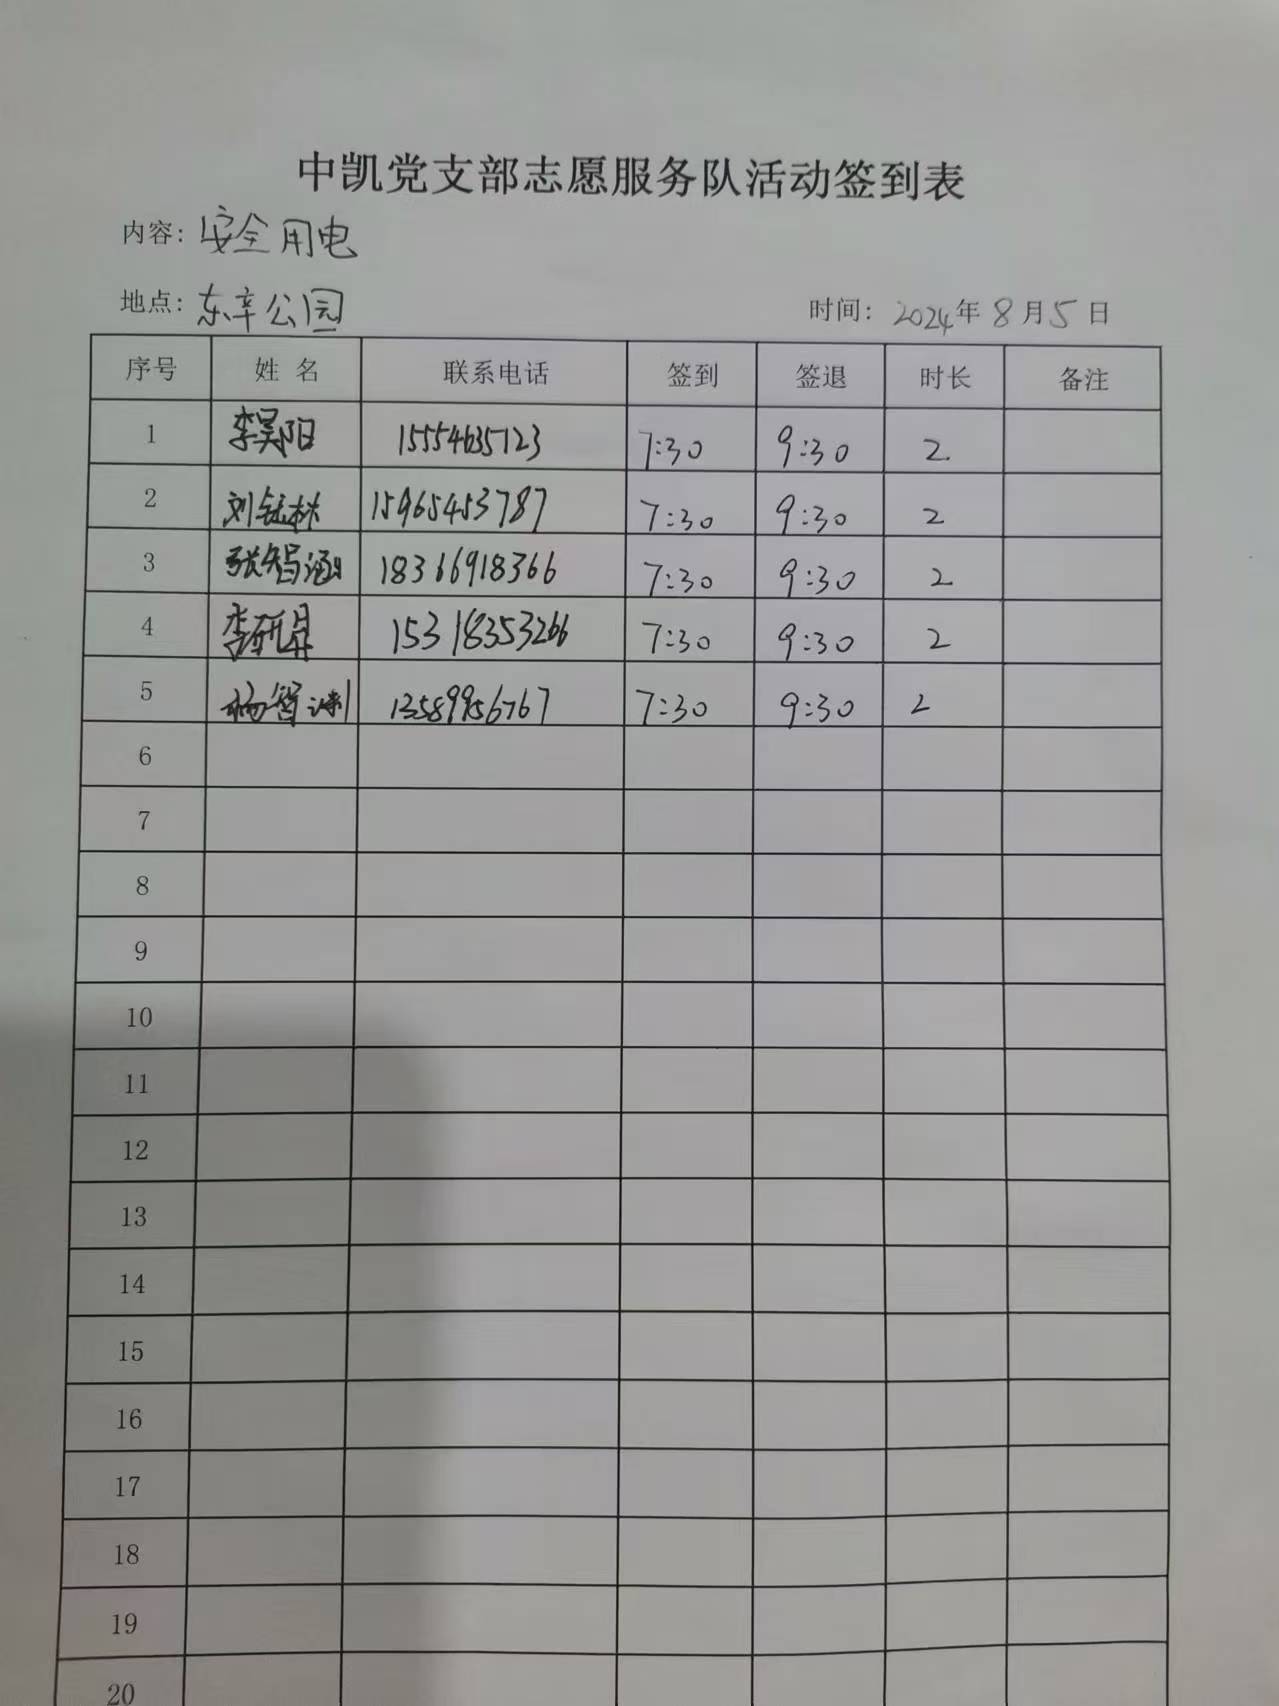 中凯党支部志愿服务队活动签到表
内容：安全用电
地点：东辛公园 时间：2024年8月5日
序号 姓名 联系电话 签到 签退 时长 备注
1 李昊阳 15554635123 7:30 9:30 2
2 刘钰林 15965453787 7:30 9:30 2
3 张智涵 18366918366 7:30 9:30 2
4 李研昇 15318353266 7:30 9:30 2
5 杨智渊 13589956767 7:30 9:30 2
6
7
8
9
10
11
12
13
14
15
16
17
18
19
20